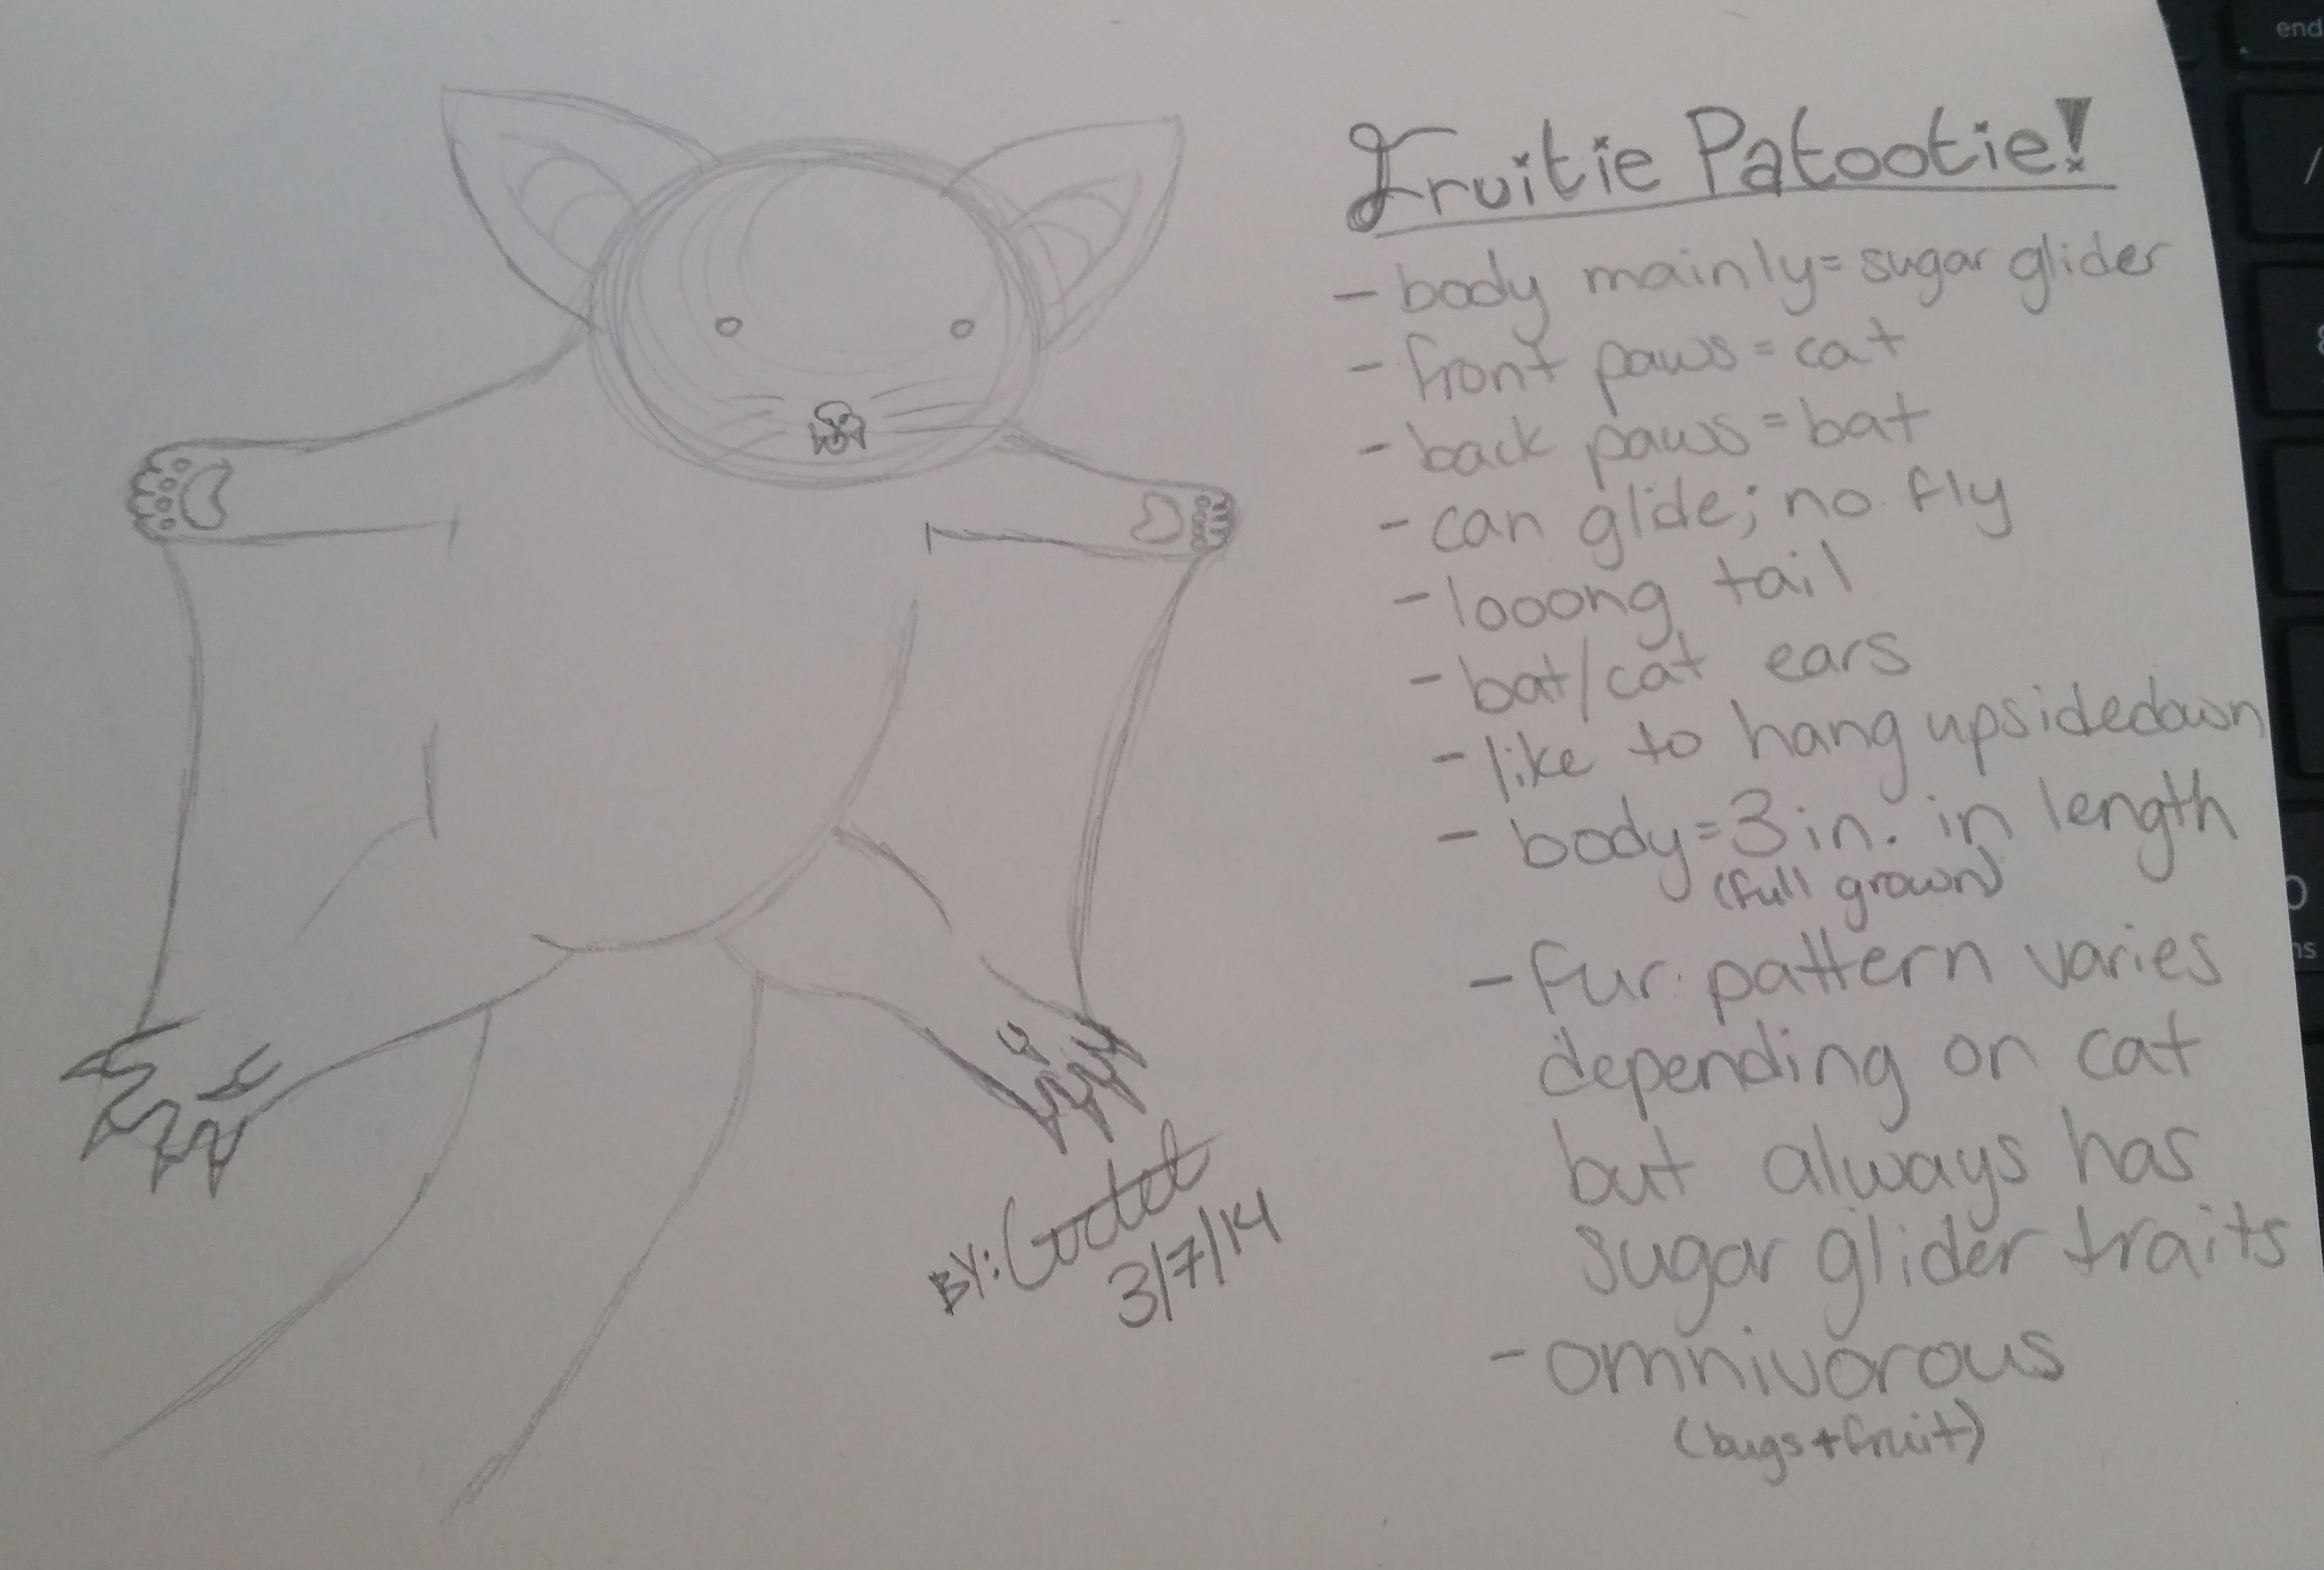 Fruitie Patootie!
- body mainly = sugar glider
- front paws = cat
- back paws = bat
- can glide; no fly
- looong tail
- bat/cat ears
- like to hang upsidedown
- body = 3 in. in length
(full grown)
- fur: pattern varies
depending on cat
but always has
sugar glider traits
- omnivorous
(bugs + fruit)
BY:
3/7/14
end
/